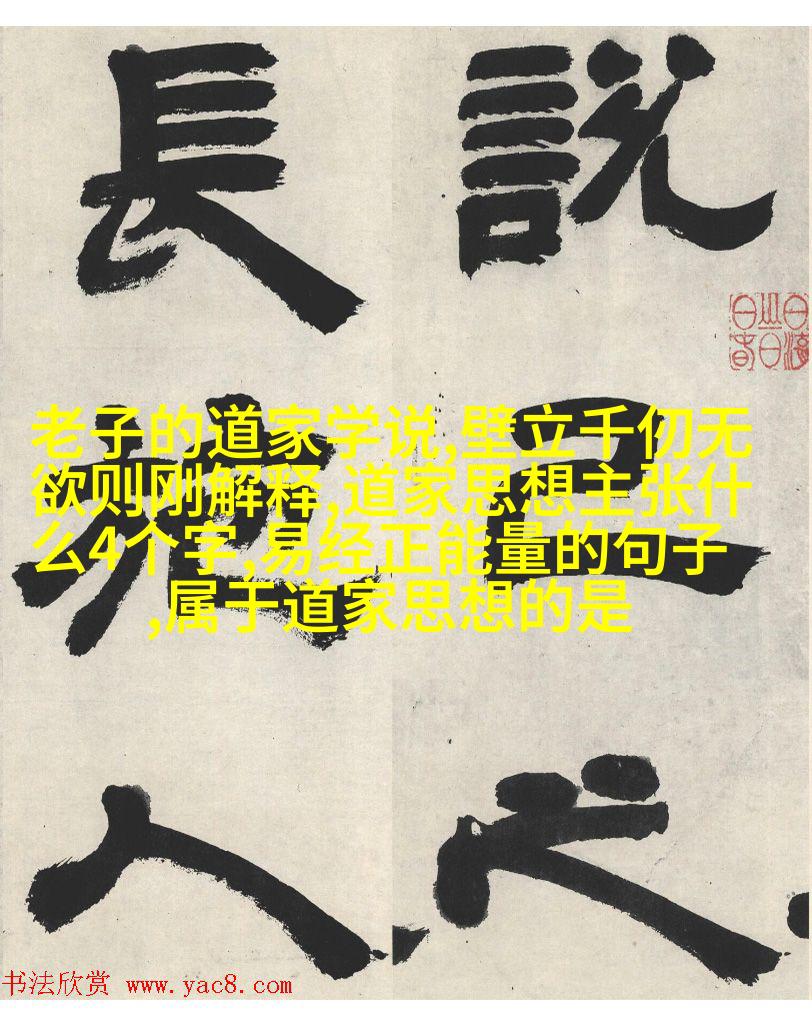 說己之
長施人
老子的道家学说,壁立千仞无
欲则刚解释,道家思想主张什
么4个字,易经正能量的句子
,属于道家思想的是
书法欣赏 www.yac8.com